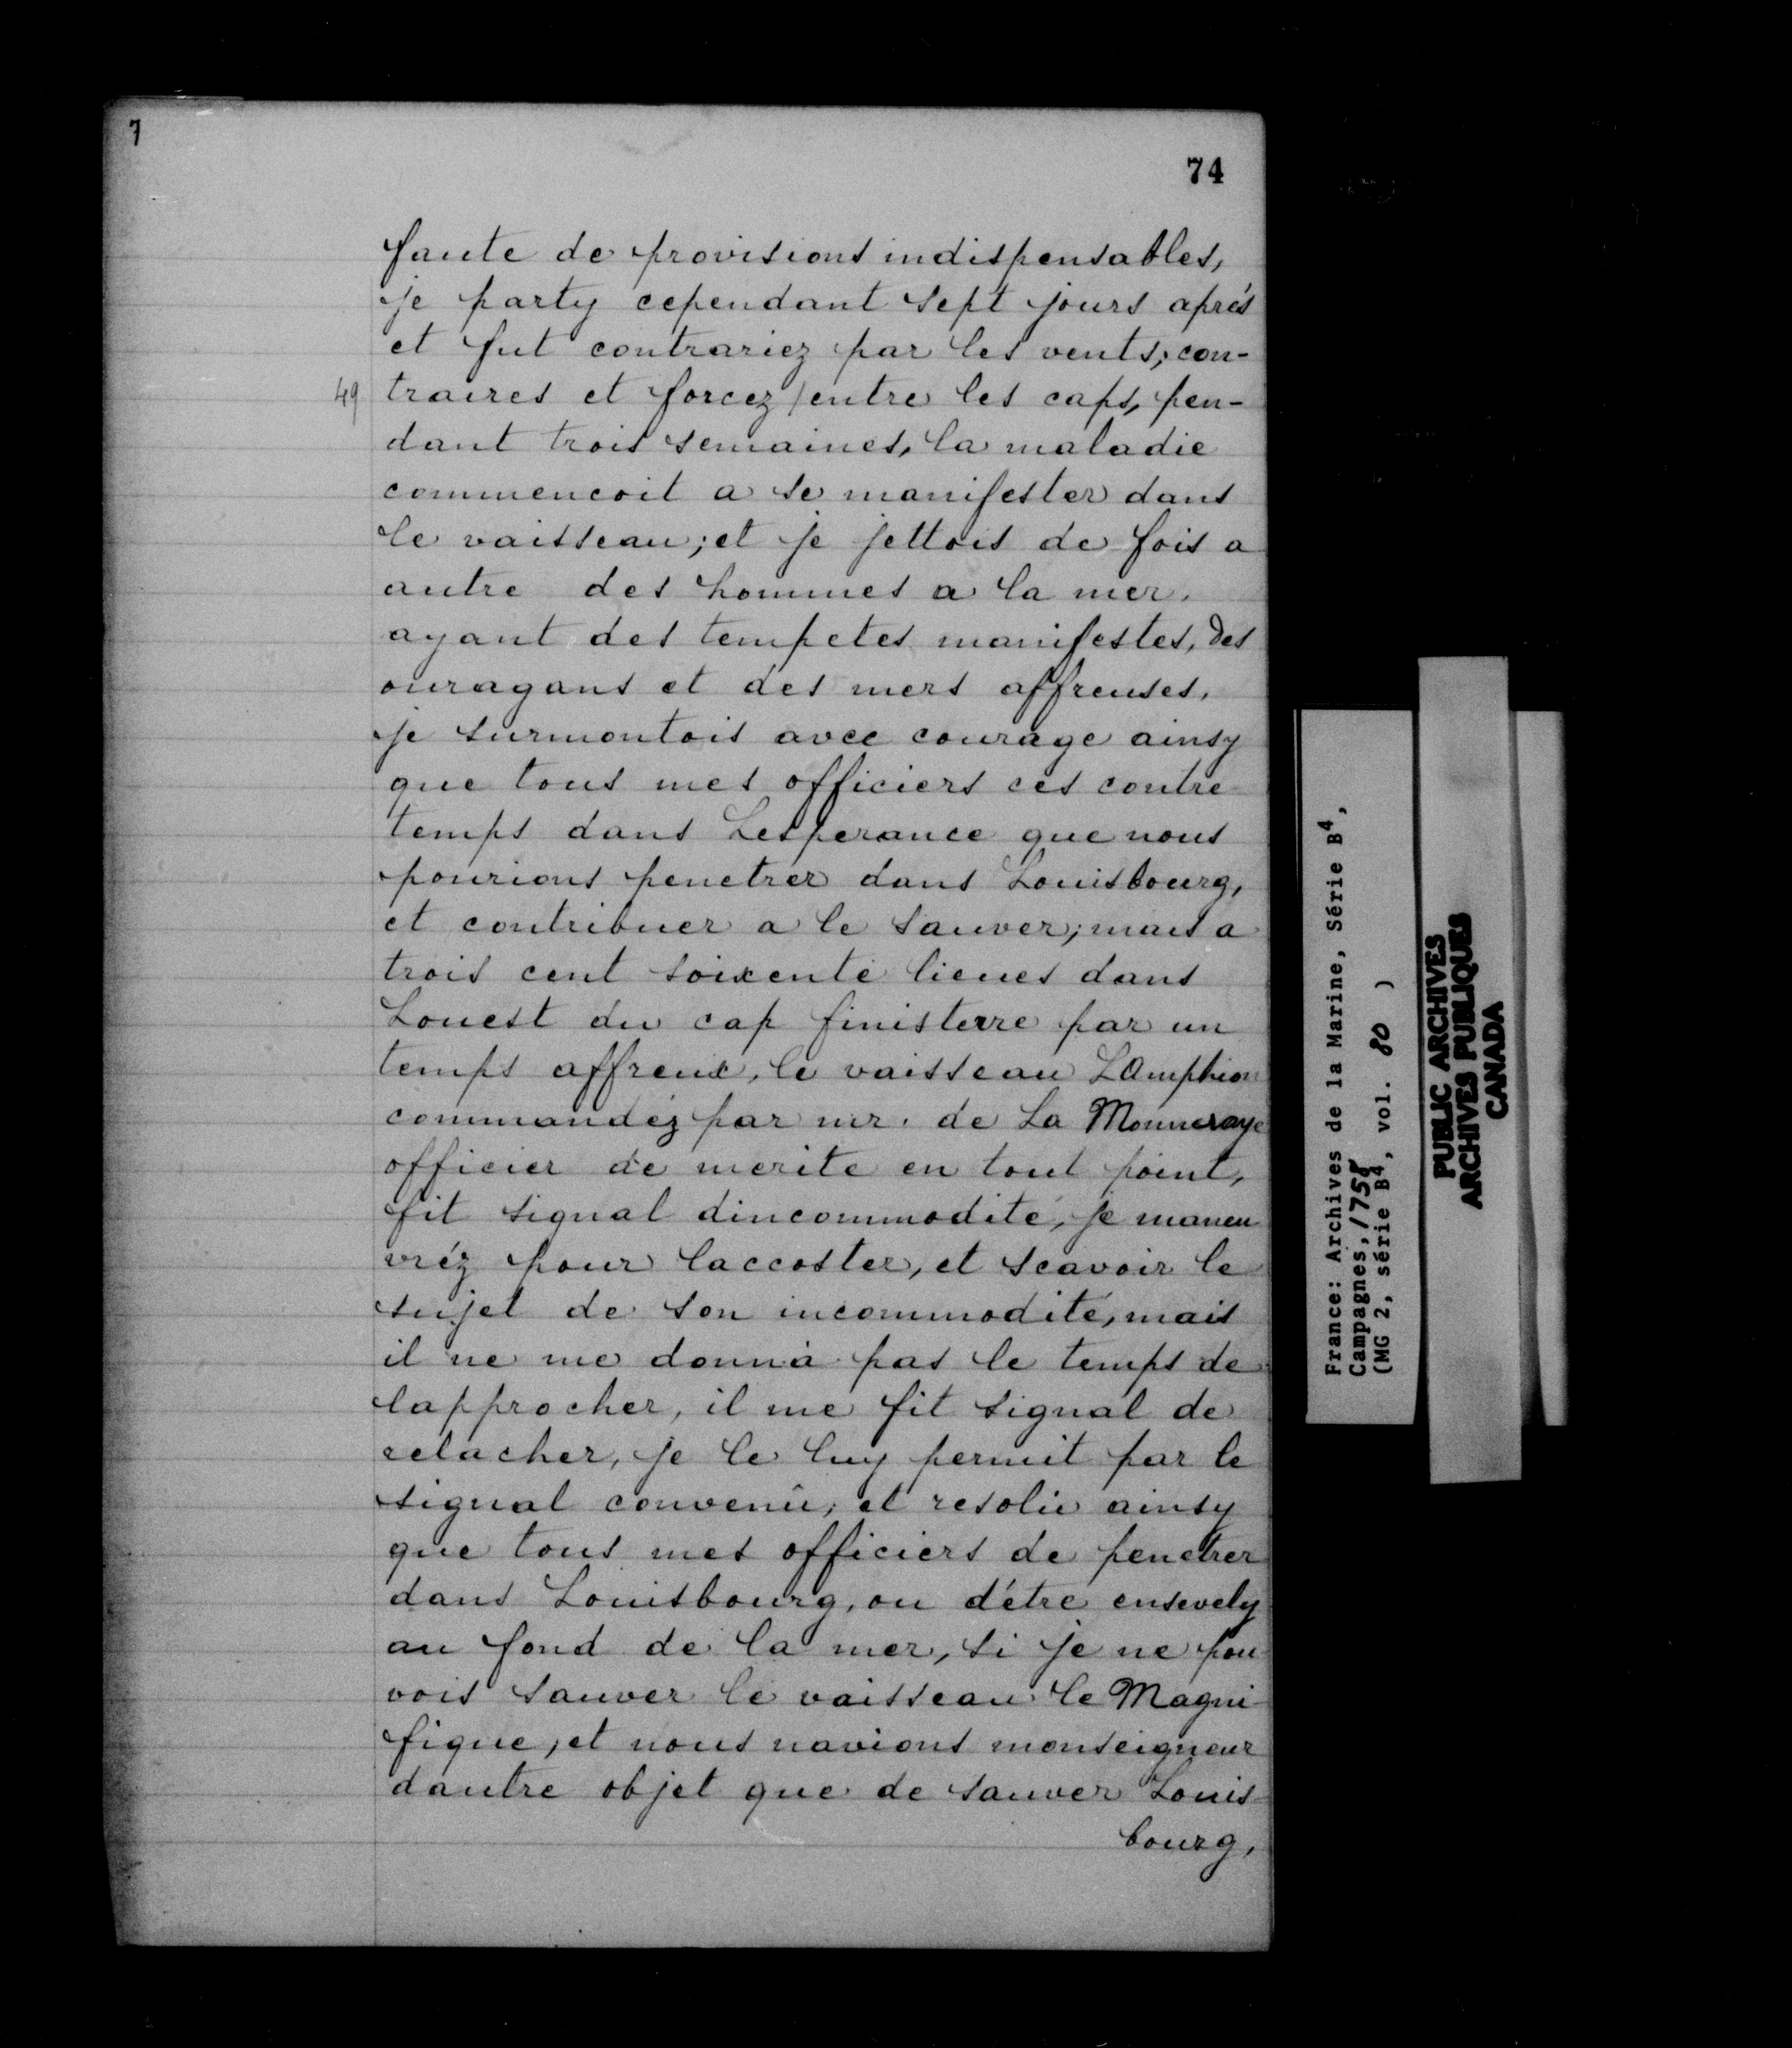 7
74
faute de provisions indispensables,
je party cependant sept jours aprés
et fut contrariez par les vents; con-
49 traires et forcez / entre les caps, pen-
dant trois semaines, la maladie
commencoit a se manifester dans
le vaisseau; et je jettois de fois a
autre des hommes a la mer,
ayant des tempetes manifestes, des
ouragans et des mers affreuses,
je surmontois avec courage ainsy
que tous mes officiers ces contre
temps dans Lesperance que nous
pourions penetrer dans Louisbourg,
et contribuer a le sauver; mais a
trois cent soixente lieues dans
Louest du cap finisterre par un
temps affreux, le vaisseau LAmphion
commandéz par mr. de La Monneraye
officier de merite en tout point,
fit signal dincommodité, je maneu
vréz pour laccoster, et scavoir le
sujet de son incommodité, mais
il ne me donna pas le temps de
lapprocher, il me fit signal de
relacher, je le luy permit par le
signal convenû, et resolu ainsy
que tous mes officiers de penetrer
dans Louisbourg, ou d'étre ensevely
au fond de la mer, si je ne pou
vois sauver le vaisseau le Magni
fique, et nous navions monseigneur
dautre objet que de sauver Louis-
bourg,
France: Archives de la Marine, Série B4,
Campagnes, 1758
(MG 2, série B4, vol. 80 )
PUBLIC ARCHIVES
ARCHIVES PUBLIQUES
CANADA